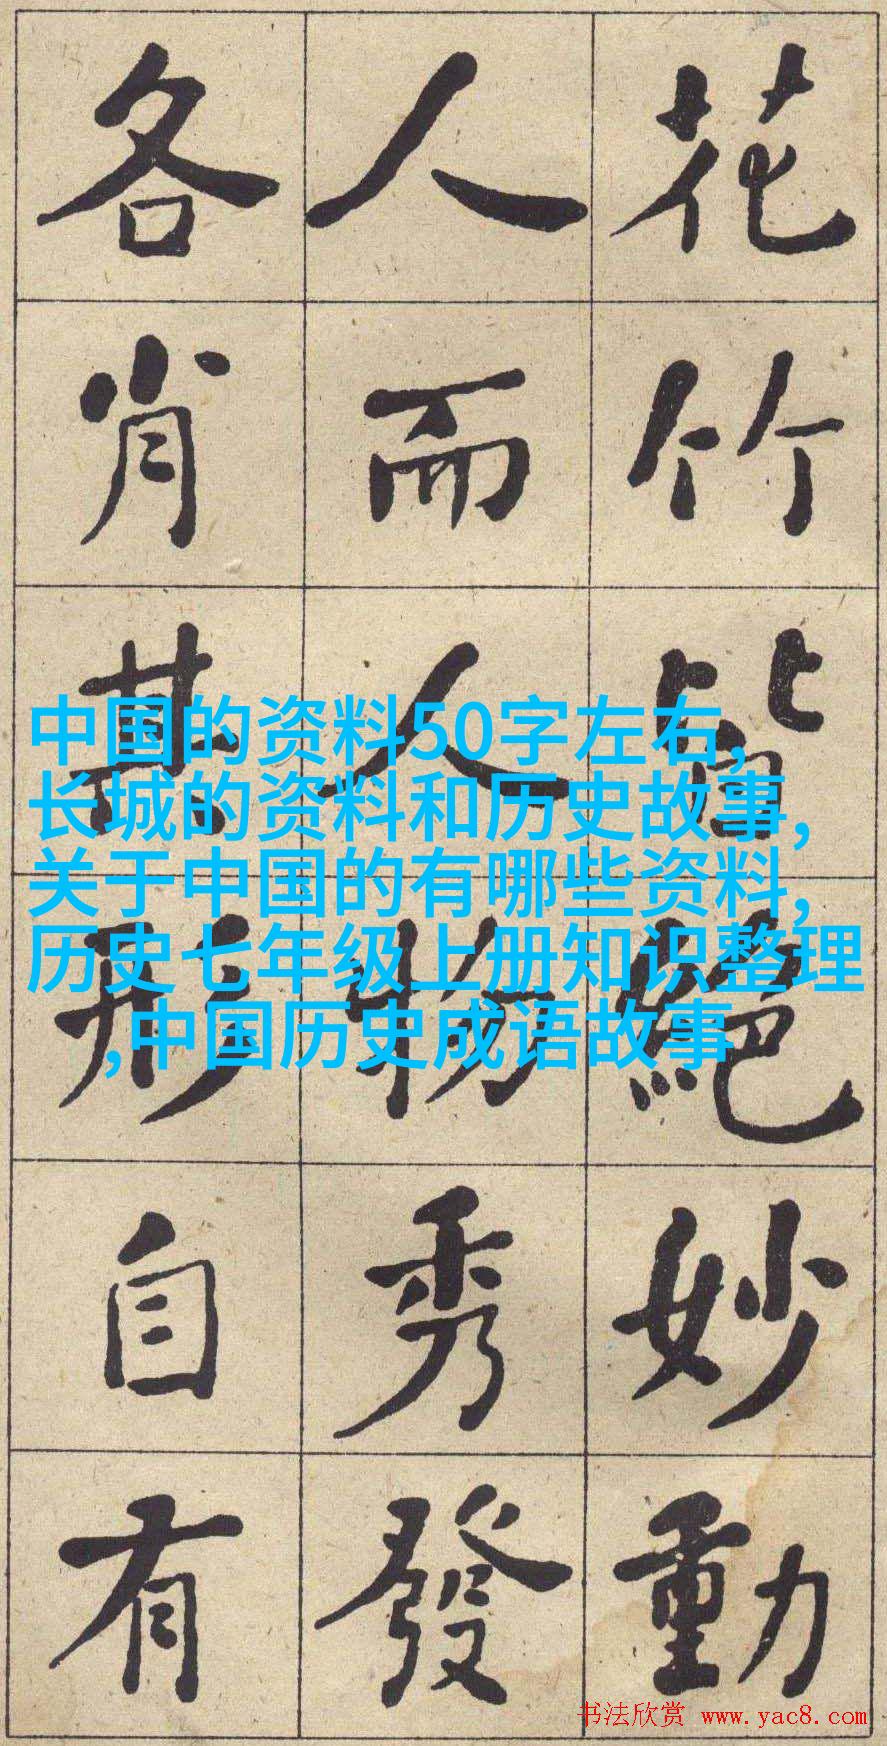 花竹皆絕妙動
人而人物秀發
各肖其形自有
中国的资料50字左右,
长城的资料和历史故事,
关于中国的有哪些资料,
历史七年级上册知识整理
,中国历史成语故事
书法欣赏 www.yac8.com